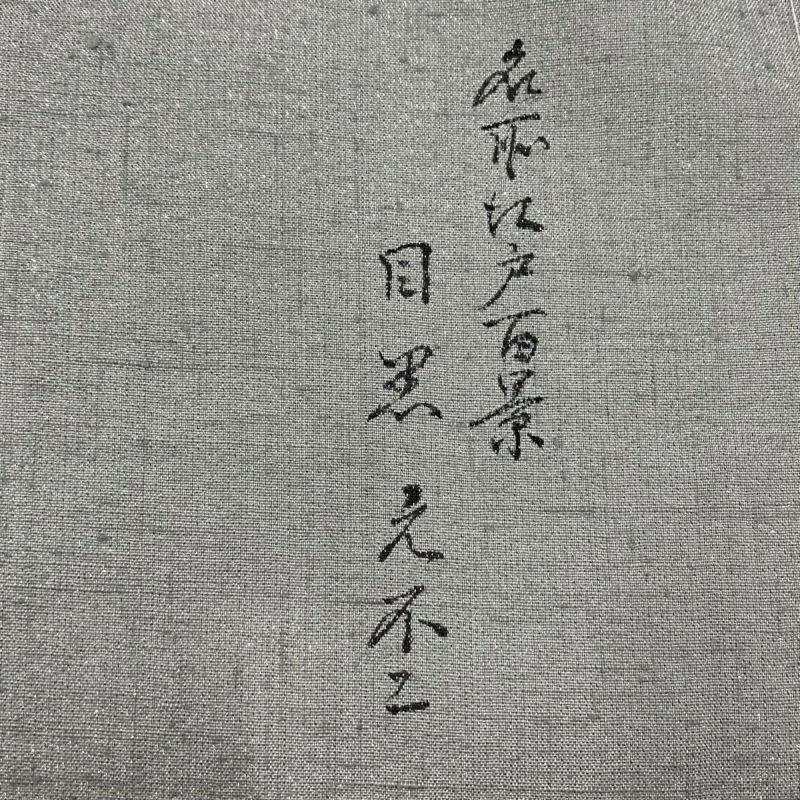 名所江戸百景
目黒元不二